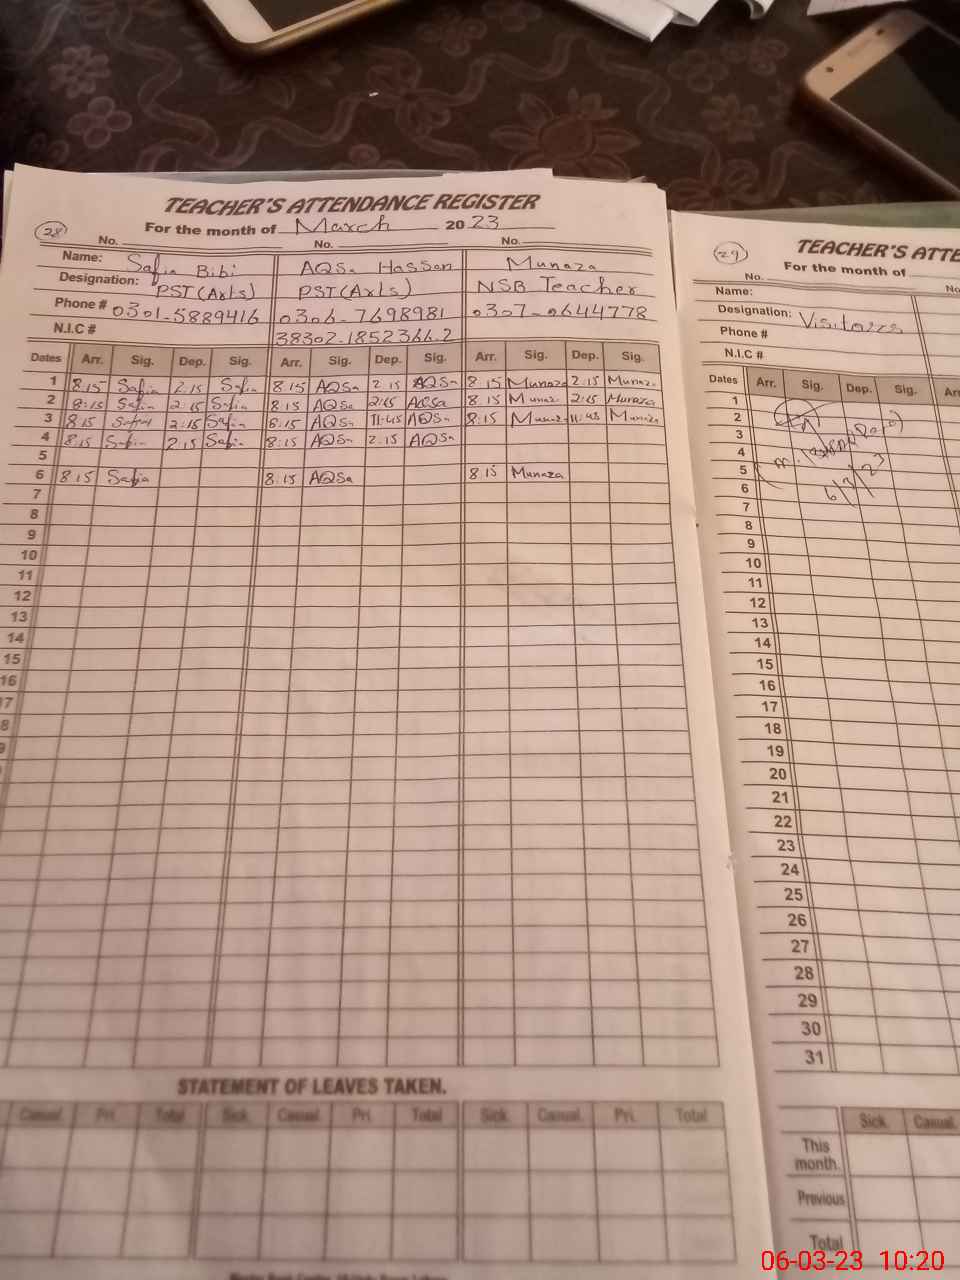 TEACHER'S ATTENDANCE REGISTER
28 For the month of March 2023
No. No. No.
Name: Safia Bibi AQSa Hassan Munaza
Designation: PST(Arts) PST(Arts) NSB Teacher
Phone # 0301-5889416 0306-7698981 0307-0644778
N.I.C # 38302-1852366-2
Dates Arr. Sig. Dep. Sig. Arr. Sig. Dep. Sig. Arr. Sig. Dep. Sig.
1 8.15 Safia 2.15 Safia 8.15 AQSa 2.15 AQSa 8.15 Munaza 2.15 Munaza
2 8:15 Safia 2:15 Safia 8.15 AQSa 2:15 AQSa 8.15 Munaza 2:15 Munaza
3 8.15 Safia 2:15 Safia 8:15 AQSa 11:45 AQSa 8:15 Munaza 11:45 Munaza
4 8.15 Safia 2.15 Safia 8:15 AQSa 2.15 AQSa
5
6 8.15 Safia 8.15 AQSa 8.15 Munaza
7
8
9
10
11
12
13
14
15
16
17
8
9
STATEMENT OF LEAVES TAKEN.
Casual. Pri. Total Sick. Casual. Pri. Total Sick. Casual. Pri. Total
TEACHER'S ATTE
29 For the month of
No. No
Name:
Designation: Visitors
Phone #
N.I.C #
Dates Arr. Sig. Dep. Sig. Ar
1
2
3
4
5
6 6/3/23
7
8
9
10
11
12
13
14
15
16
17
18
19
20
21
22
23
24
25
26
27
28
29
30
31
Sick. Casual.
This month.
Previous
Total
06-03-23 10:20